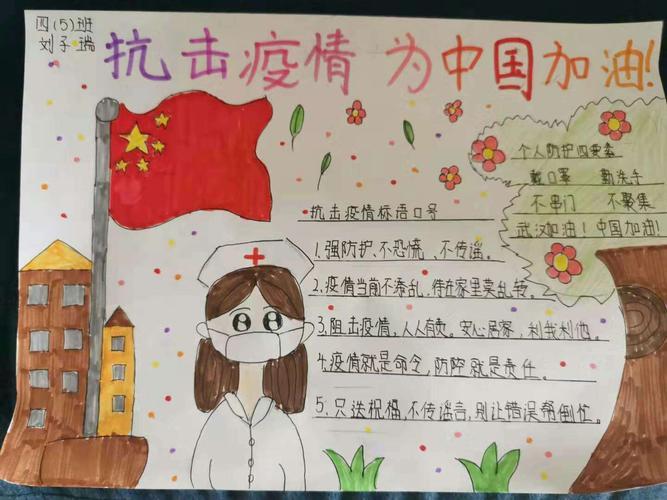 四(5)班
刘子瑞
抗击疫情 为中国加油!
个人防护四要素
戴口罩 勤洗手
不串门 不聚集
武汉加油!中国加油!
抗击疫情标语口号
1.强防护、不恐慌、不传谣。
2.疫情当前不添乱,待在家里莫乱转。
3.阻击疫情,人人有责。安心居家,利我利他。
4.疫情就是命令,防猝就是责任。
5.只送祝福,不传谣言,别让错误帮倒忙。